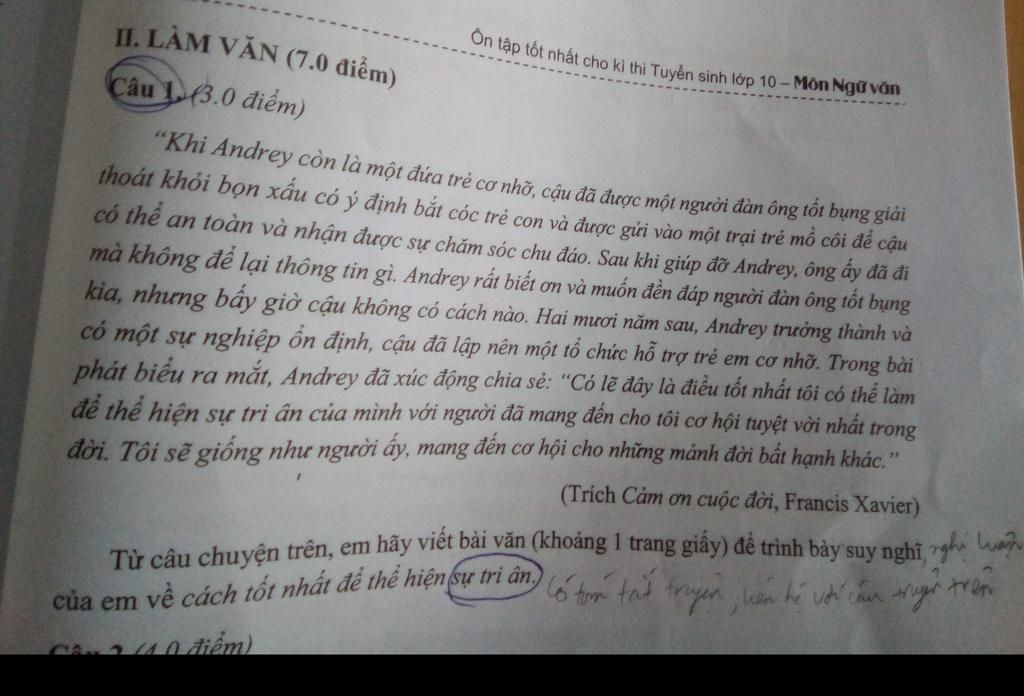 Ôn tập tốt nhất cho kì thi Tuyển sinh lớp 10 – Môn Ngữ văn
II. LÀM VĂN (7.0 điểm)
Câu 1. (3.0 điểm)
“Khi Andrey còn là một đứa trẻ cơ nhỡ, cậu đã được một người đàn ông tốt bụng giải
thoát khỏi bọn xấu có ý định bắt cóc trẻ con và được gửi vào một trại trẻ mồ côi để cậu
có thể an toàn và nhận được sự chăm sóc chu đáo. Sau khi giúp đỡ Andrey, ông ấy đã đi
mà không để lại thông tin gì. Andrey rất biết ơn và muốn đền đáp người đàn ông tốt bụng
kia, nhưng bấy giờ cậu không có cách nào. Hai mươi năm sau, Andrey trưởng thành và
có một sự nghiệp ổn định, cậu đã lập nên một tổ chức hỗ trợ trẻ em cơ nhỡ. Trong bài
phát biểu ra mắt, Andrey đã xúc động chia sẻ: “Có lẽ đây là điều tốt nhất tôi có thể làm
để thể hiện sự tri ân của mình với người đã mang đến cho tôi cơ hội tuyệt vời nhất trong
đời. Tôi sẽ giống như người ấy, mang đến cơ hội cho những mảnh đời bất hạnh khác.”
(Trích Cảm ơn cuộc đời, Francis Xavier)
Từ câu chuyện trên, em hãy viết bài văn (khoảng 1 trang giấy) để trình bày suy nghĩ, nghị luận
của em về cách tốt nhất để thể hiện sự tri ân. Có tóm tắt truyện, liên hệ với câu truyện trên
Câu 2 (4.0 điểm)